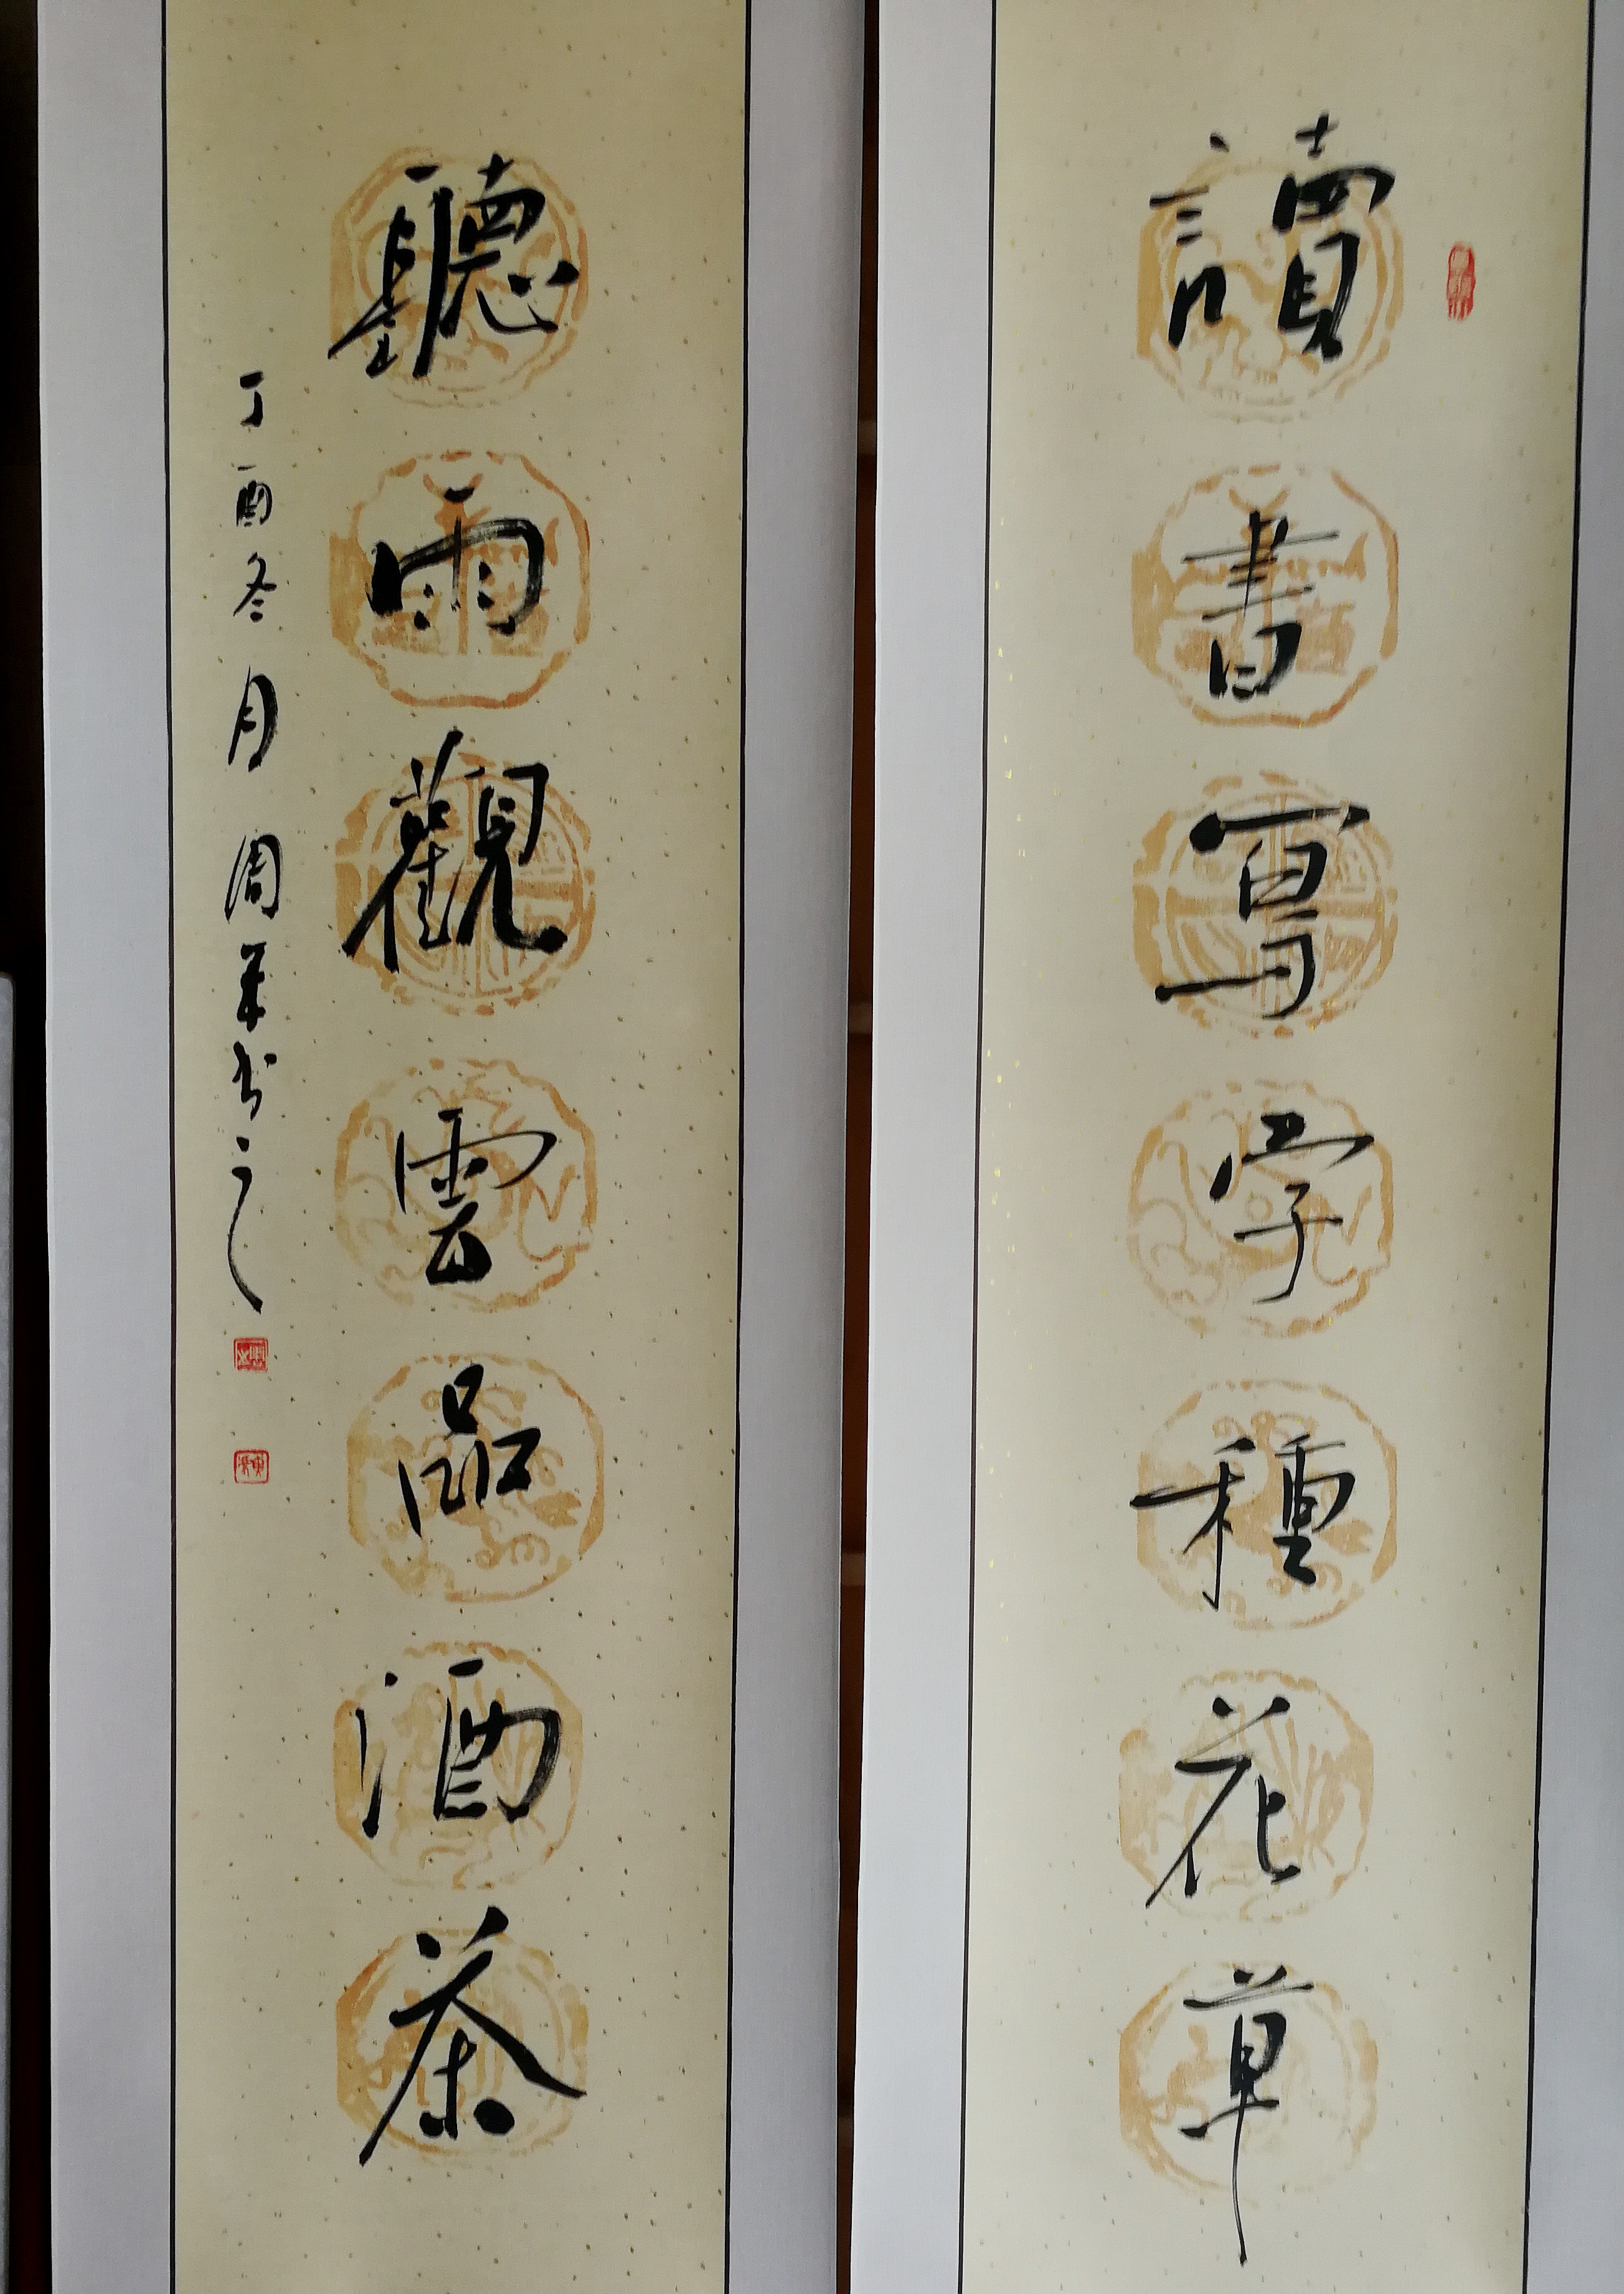 讀書寫字種花草
聽雨觀雲品酒茶
丁酉冬月 周 书之